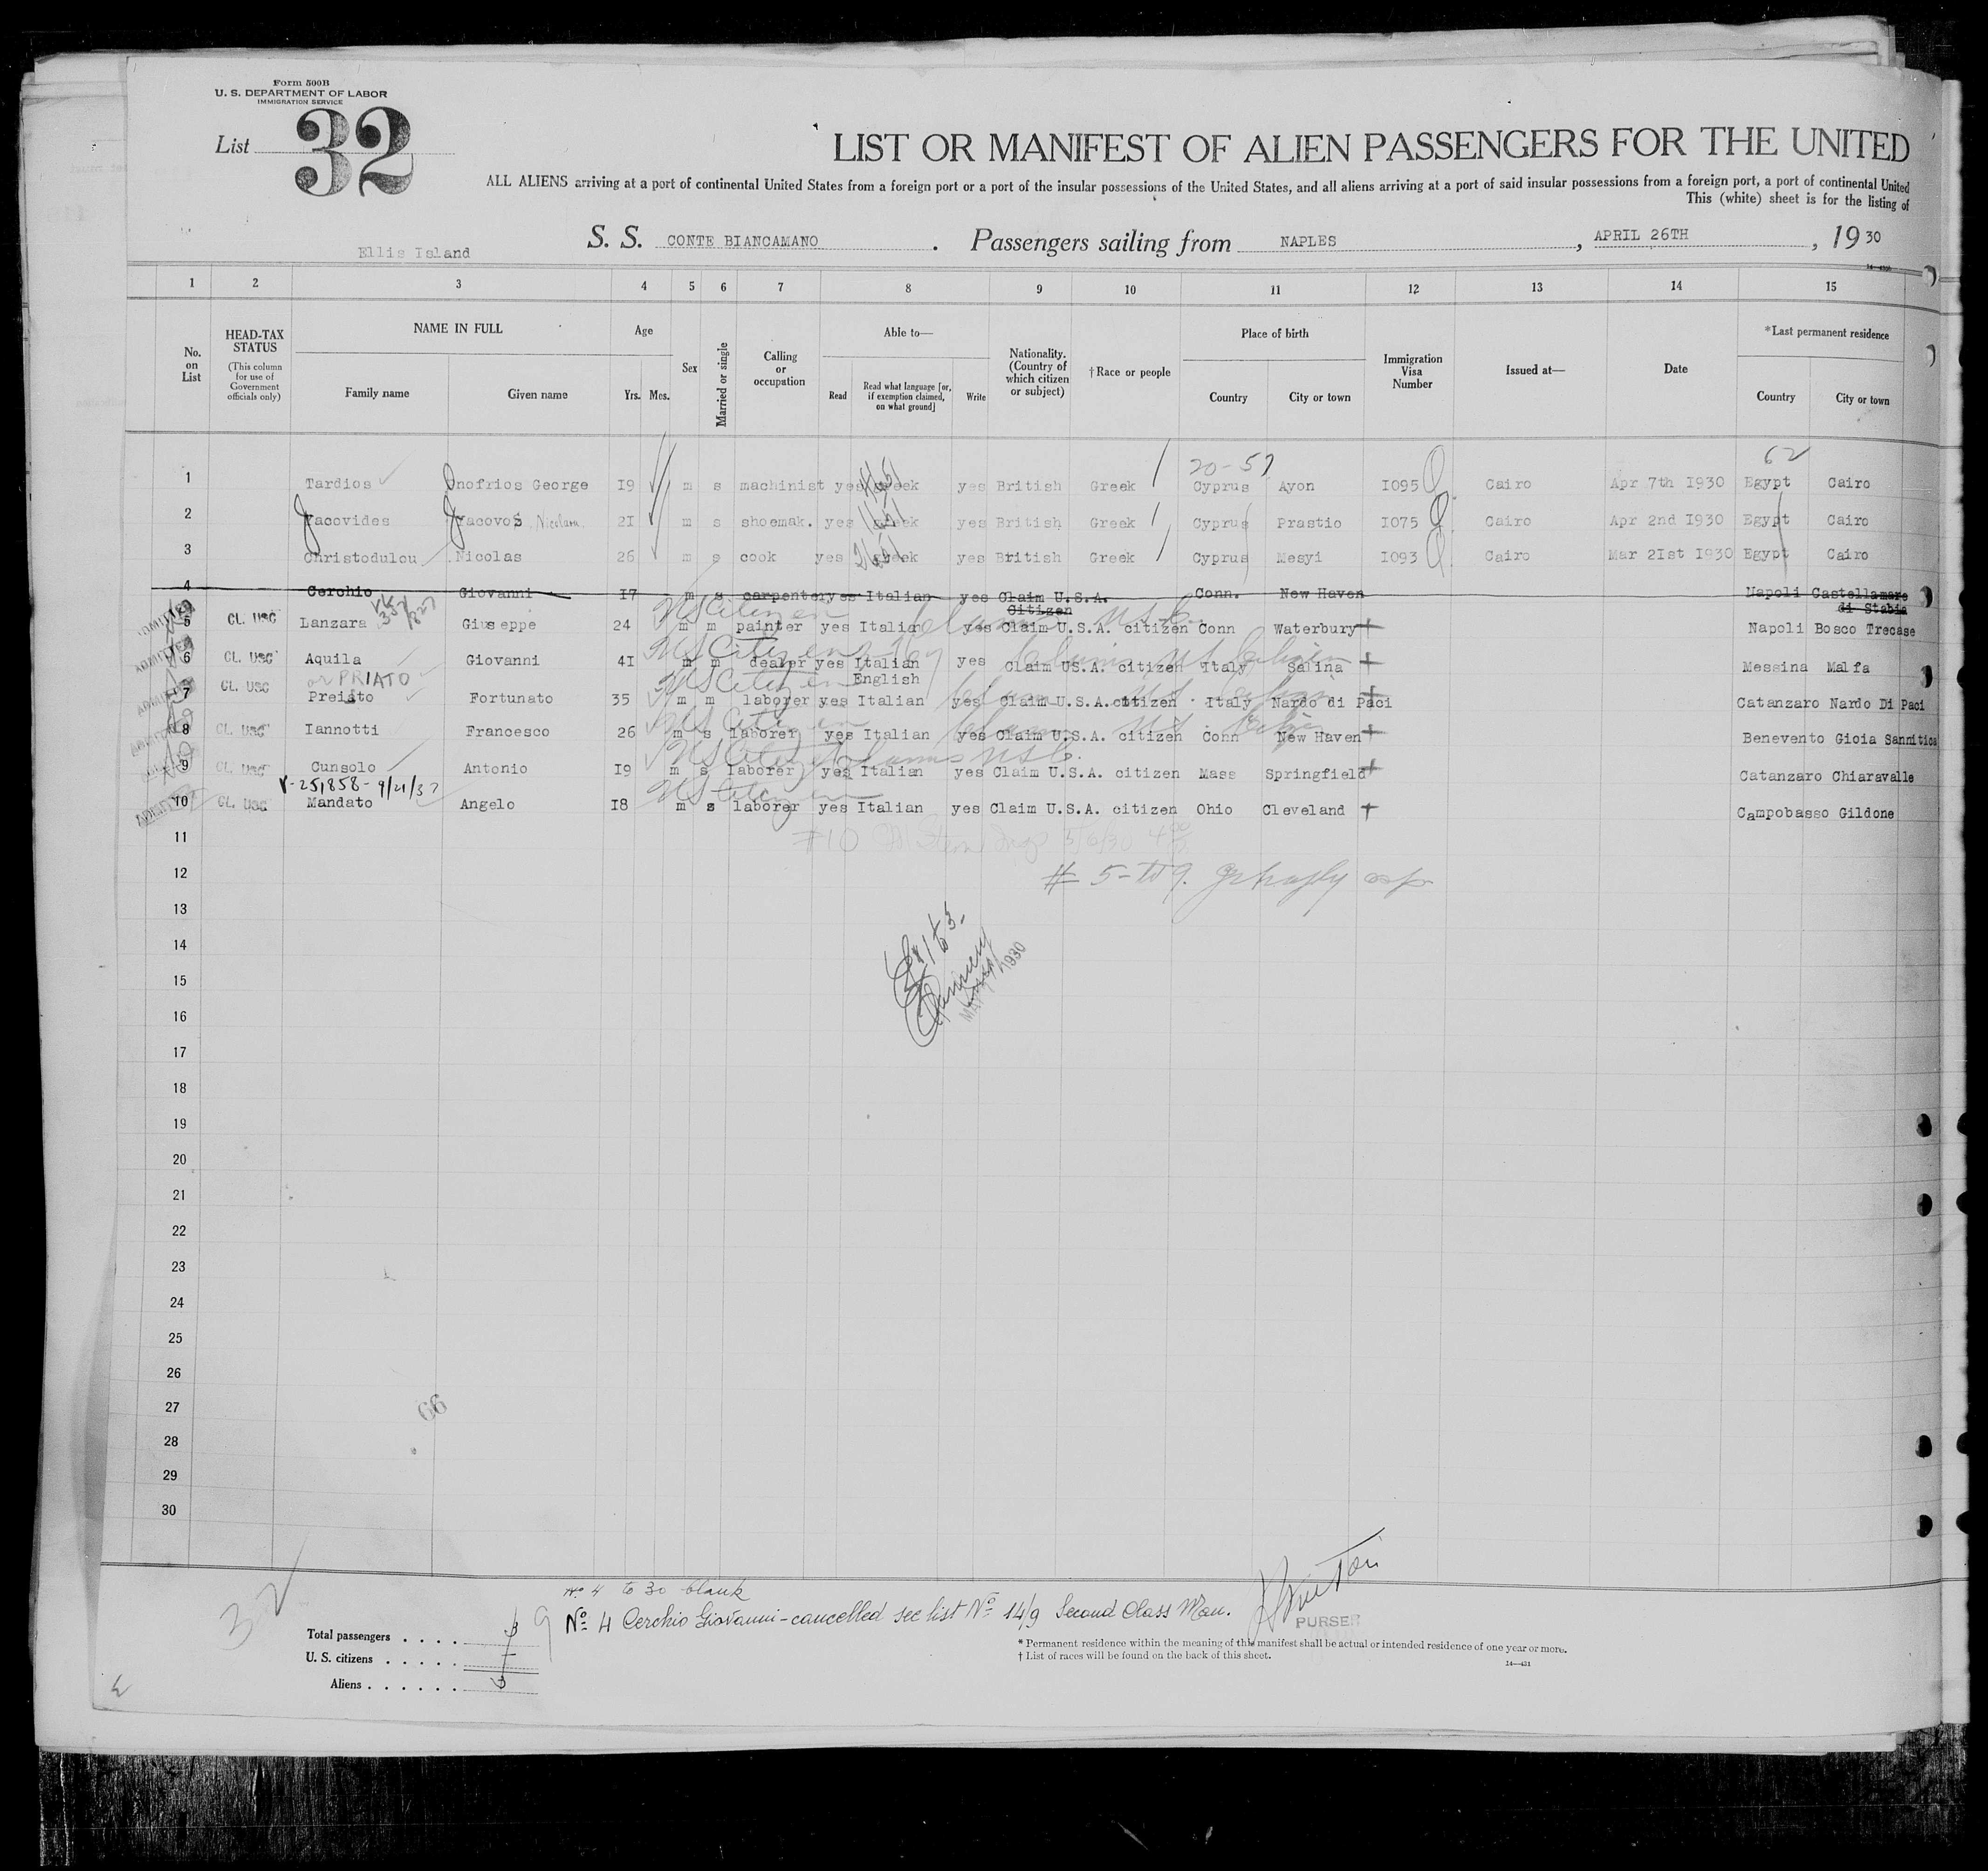 Form 500B
U. S. DEPARTMENT OF LABOR
IMMIGRATION SERVICE
List 32
LIST OR MANIFEST OF ALIEN PASSENGERS FOR THE UNITED
ALL ALIENS arriving at a port of continental United States from a foreign port or a port of the insular possessions of the United States, and all aliens arriving at a port of said insular possessions from a foreign port, a port of continental United
This (white) sheet is for the listing of
Ellis Island
S. S. CONTE BIANCAMANO . Passengers sailing from NAPLES , APRIL 26TH , 19 30
1 2 3 4 5 6 7 8 9 10 11 12 13 14 15
No. on List
HEAD-TAX STATUS (This column for use of Government officials only)
NAME IN FULL Family name Given name
Age Yrs. Mos.
Sex
Married or single
Calling or occupation
Able to— Read Read what language [or, if exemption claimed, on what ground] Write
Nationality. (Country of which citizen or subject)
†Race or people
Place of birth Country City or town
Immigration Visa Number
Issued at—
Date
*Last permanent residence Country City or town
20-57 62
1 Tardios Onofrios George I9 m s machinist yes greek yes British Greek Cyprus Ayon I095 Cairo Apr 7th I930 Egypt Cairo
2 Jacovides Jacovos Nicolara 2I m s shoemak. yes greek yes British Greek Cyprus Prastio I075 Cairo Apr 2nd I930 Egypt Cairo
3 Christodulou Nicolas 26 m s cook yes greek yes British Greek Cyprus Mesyi I093 Cairo Mar 2Ist I930 Egypt Cairo
4 Cerchio Giovanni I7 m s carpenter yes Italian yes Claim U.S.A. Citizen Conn. New Haven Napoli Castellamare di Stabia
5 ADMITTED CL. USC Lanzara Giuseppe 24 m m painter yes Italian yes Claim U.S.A. citizen Conn Waterbury Napoli Bosco Trecase
US Citizen
6 ADMITTED CL. USC Aquila Giovanni 4I m m dealer yes Italian yes Claim US.A. citizen Italy Salina Messina Malfa
US Citizen
or PRIATO English
7 ADMITTED CL. USC Preiato Fortunato 35 m m laborer yes Italian yes Claim U.S.A. citizen Italy Nardo di Paci Catanzaro Nardo Di Paci
US Citizen
8 ADMITTED CL. USC Iannotti Francesco 26 m s laborer yes Italian yes Claim U.S.A. citizen Conn New Haven Benevento Gioia Sannitica
US Citizen
9 CL. USC Cunsolo Antonio I9 m s laborer yes Italian yes Claim U.S.A. citizen Mass Springfield Catanzaro Chiaravalle
US Citizen
V-251858 - 9/21/37
10 ADMITTED CL. USC Mandato Angelo I8 m s laborer yes Italian yes Claim U.S.A. citizen Ohio Cleveland Campobasso Gildone
US Citizen
11 #10
12 # 5 - to 9.
13
14
15
1930
16
17
18
19
20
21
22
23
24
25
26
27
66
28
29
30
No 4 to 30 blank
No 4 Cerchio Giovanni - cancelled see list No 14/9 Second Class Man.
PURSER
32
Total passengers . . . . 9
U. S. citizens . . . . .
Aliens . . . . . .
* Permanent residence within the meaning of this manifest shall be actual or intended residence of one year or more.
† List of races will be found on the back of this sheet.
14—431